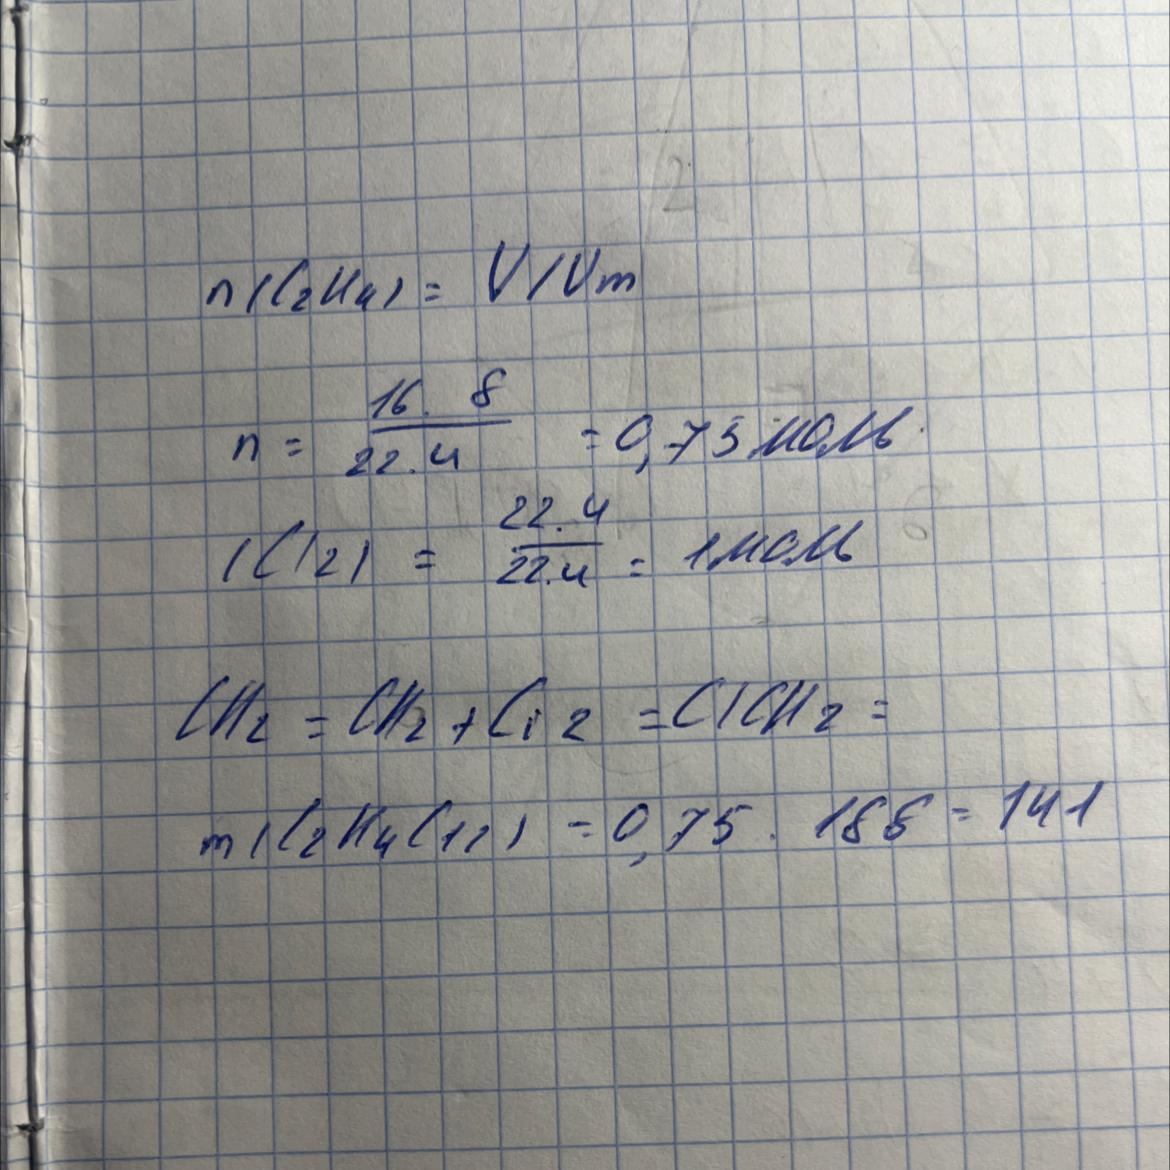 n(C₂H₄) = V/Vm
n = 16.8 / 22.4 = 0,75 моль.
(Cl₂) = 22.4 / 22.4 = 1 моль
CH₂ = CH₂ + Cl₂ = ClCH₂ =
m(C₂H₄Cl₂) = 0,75 . 188 = 141